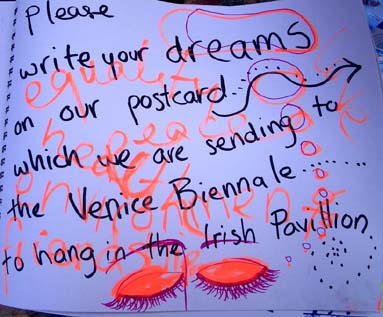 please
write your dreams
on our postcard..
which we are sending to
the Venice Biennale
to hang in the Irish Pavillion
equality